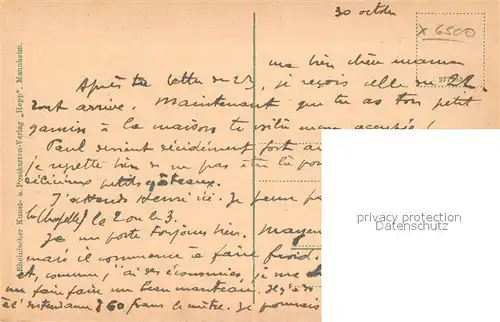 30 octobre
x 6500
ma bien chère maman
Après ta lettre du 23, je reçois celle du 22.
tout arrive. Maintenant que tu as ton petit
gamin à la maison te voilà occupée !
Paul devient décidément fort au
je regrette bien de ne pas être là pour
délicieux petits gâteaux.
J'attends Henri ici. Je pense
le 2 ou le 3.
Je me porte toujours bien.
mais il commence à faire froid.
et, comme j'ai des économies, je me
faire faire un beau manteau.
60 francs le mètre. Je pourrais
Rheinischer Kunst- u. Postkarten-Verlag „Hepp“, Mannheim.
privacy protection
oldthing.de